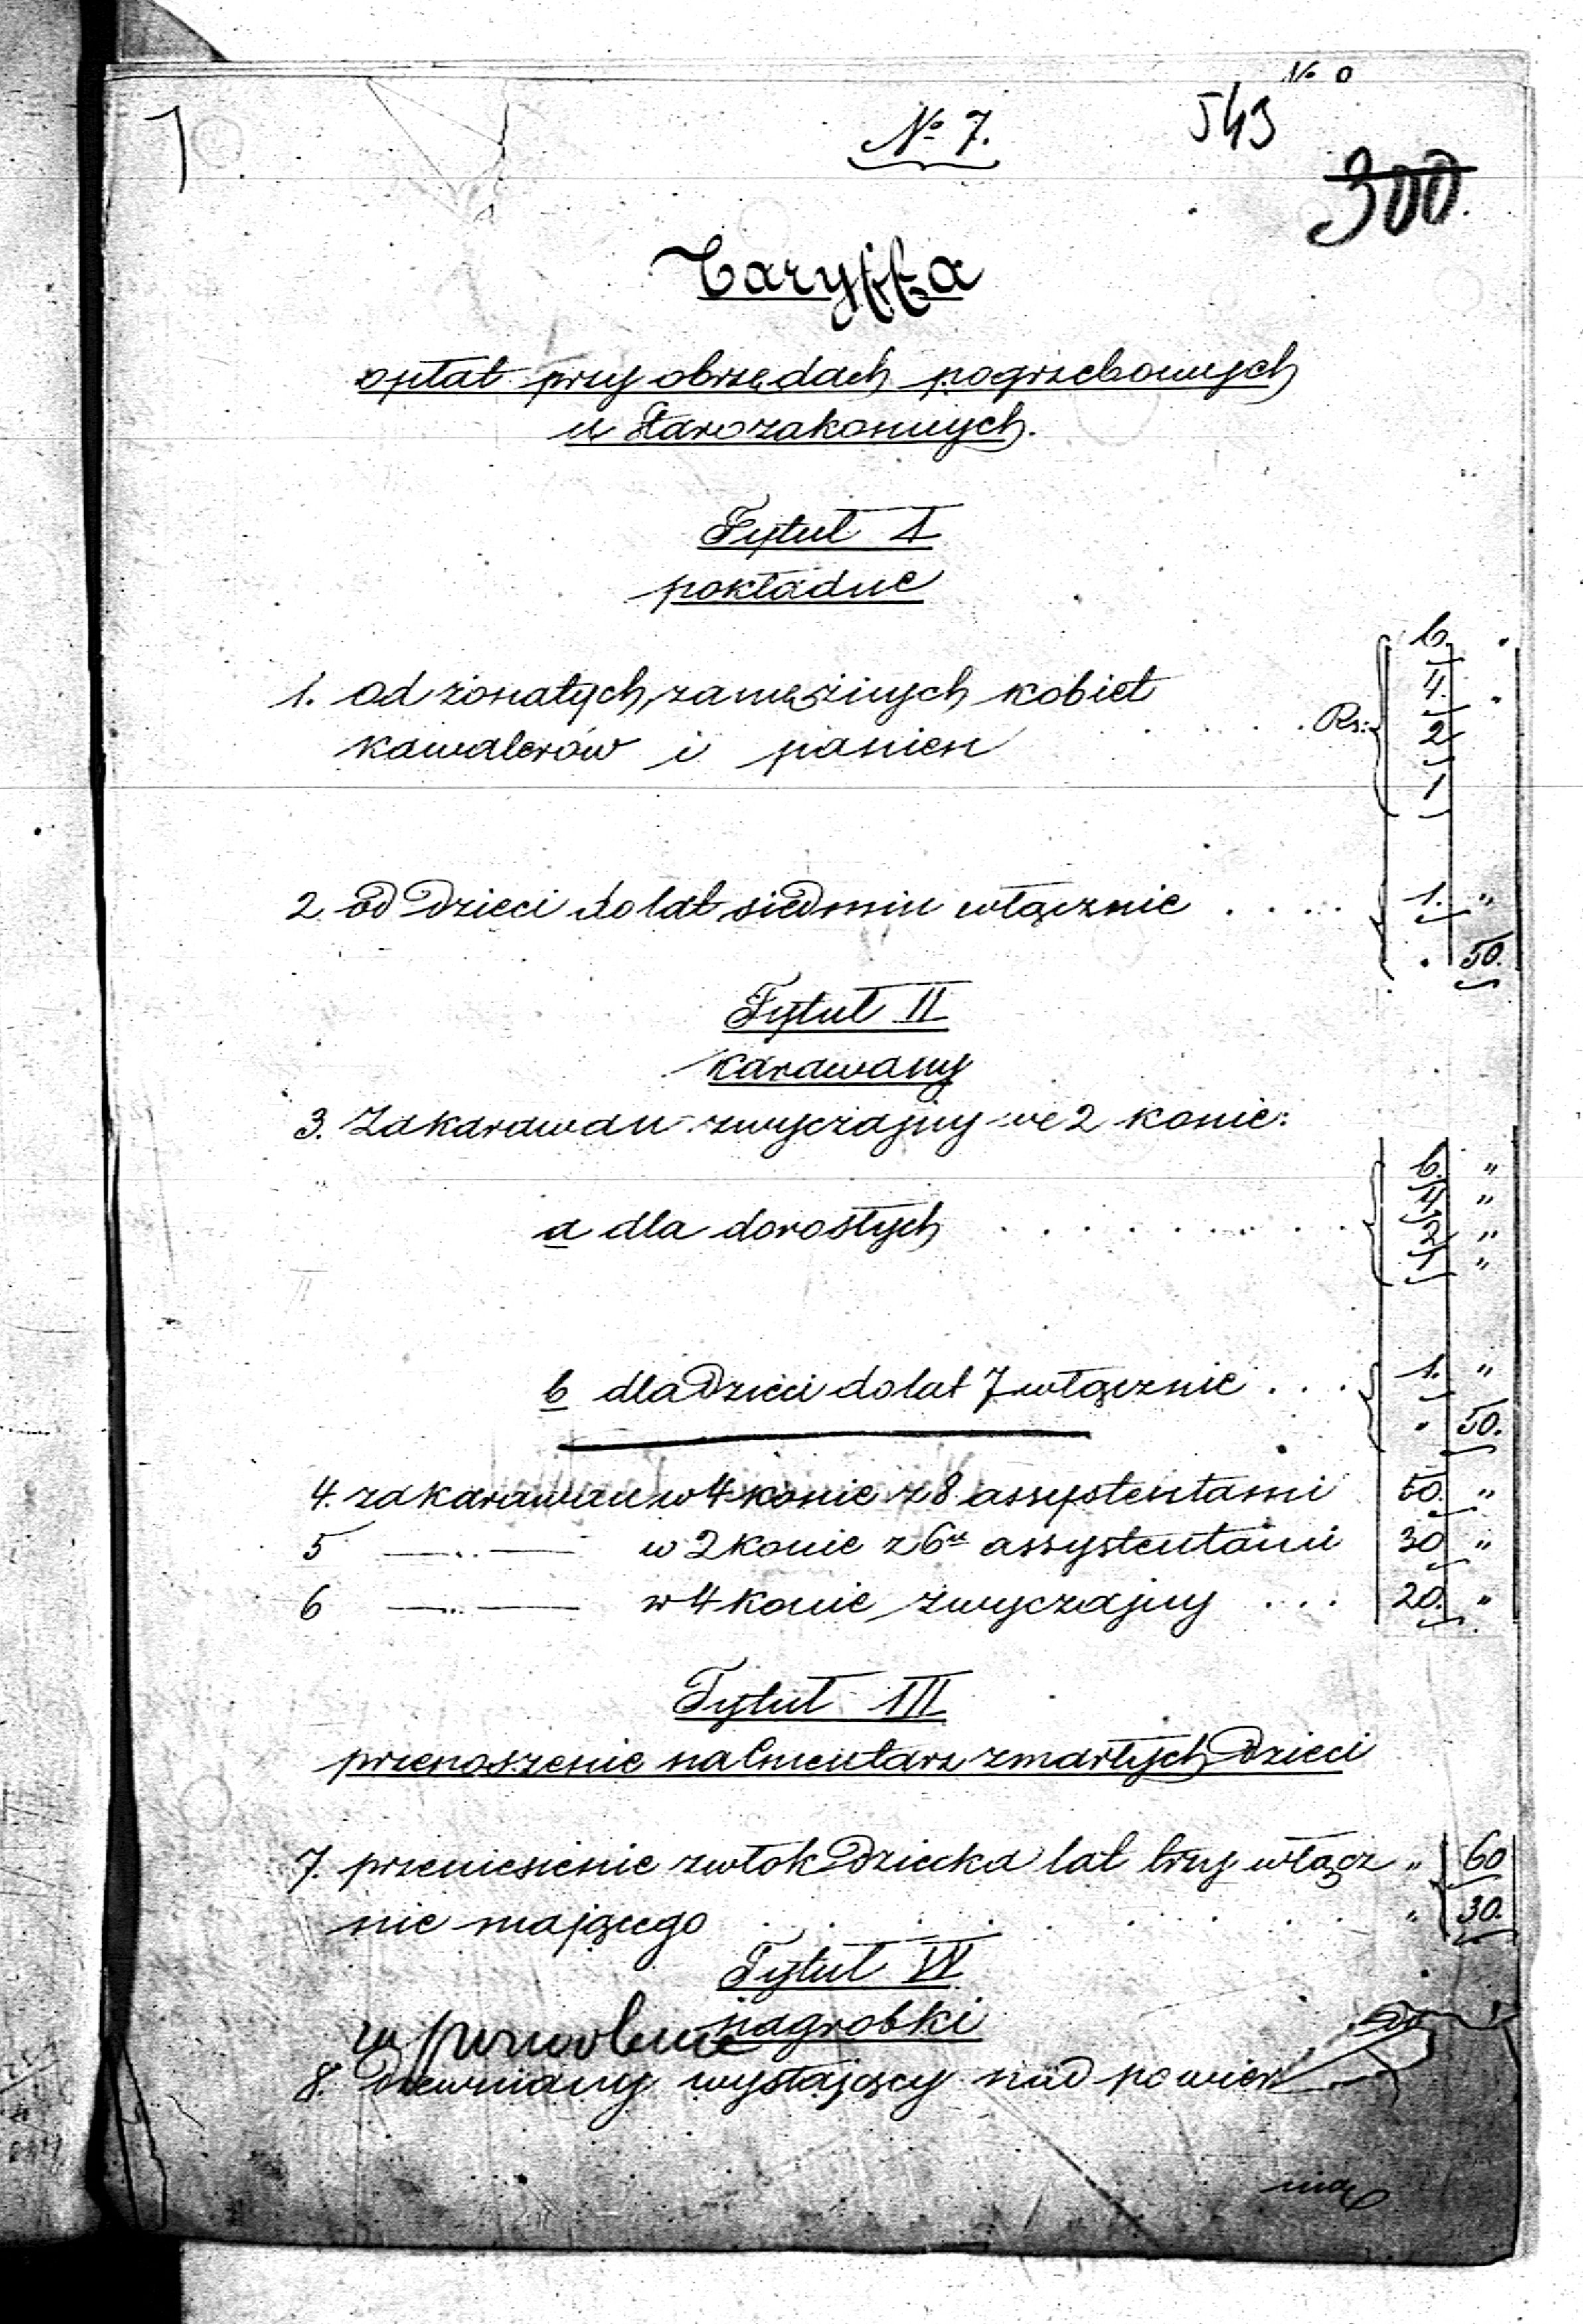 № 0
№ 7.
543
300.
Taryffa
opłat przy obrzędach pogrzebowych
u Starozakonnych.
Tytuł I
pokładne
1. Od żonatych, zamężnych kobiet
kawalerów i panien . . . . . Rs:
6. .
4. .
2
1
2 od Dzieci do lat siedmiu włącznie . . . . . 1. "
. 50.
Tytuł II
Karawany
3. Za karawan zwyczajny we 2 konie:
6. "
4 "
a dla dorosłych . . . . . . . . . 2 "
1 "
b dla Dzieci do lat 7 włącznie . . . 1. "
" 50.
4. za karawan w 4 konie z 8 assystentami 50. "
5 —"— w 2 konie z 6u assystentami 30 "
6 —"— w 4 konie zwyczajny . . . 20. "
Tytuł III
przenoszenie na Cmentarz zmarłych Dzieci
7. przeniesienie zwłok Dziecka lat trzy włącz " 60
nie mającego . . . . . . . . . " 30.
Tytuł IV
nagrobki
8. Drewniany wystający nad powierz